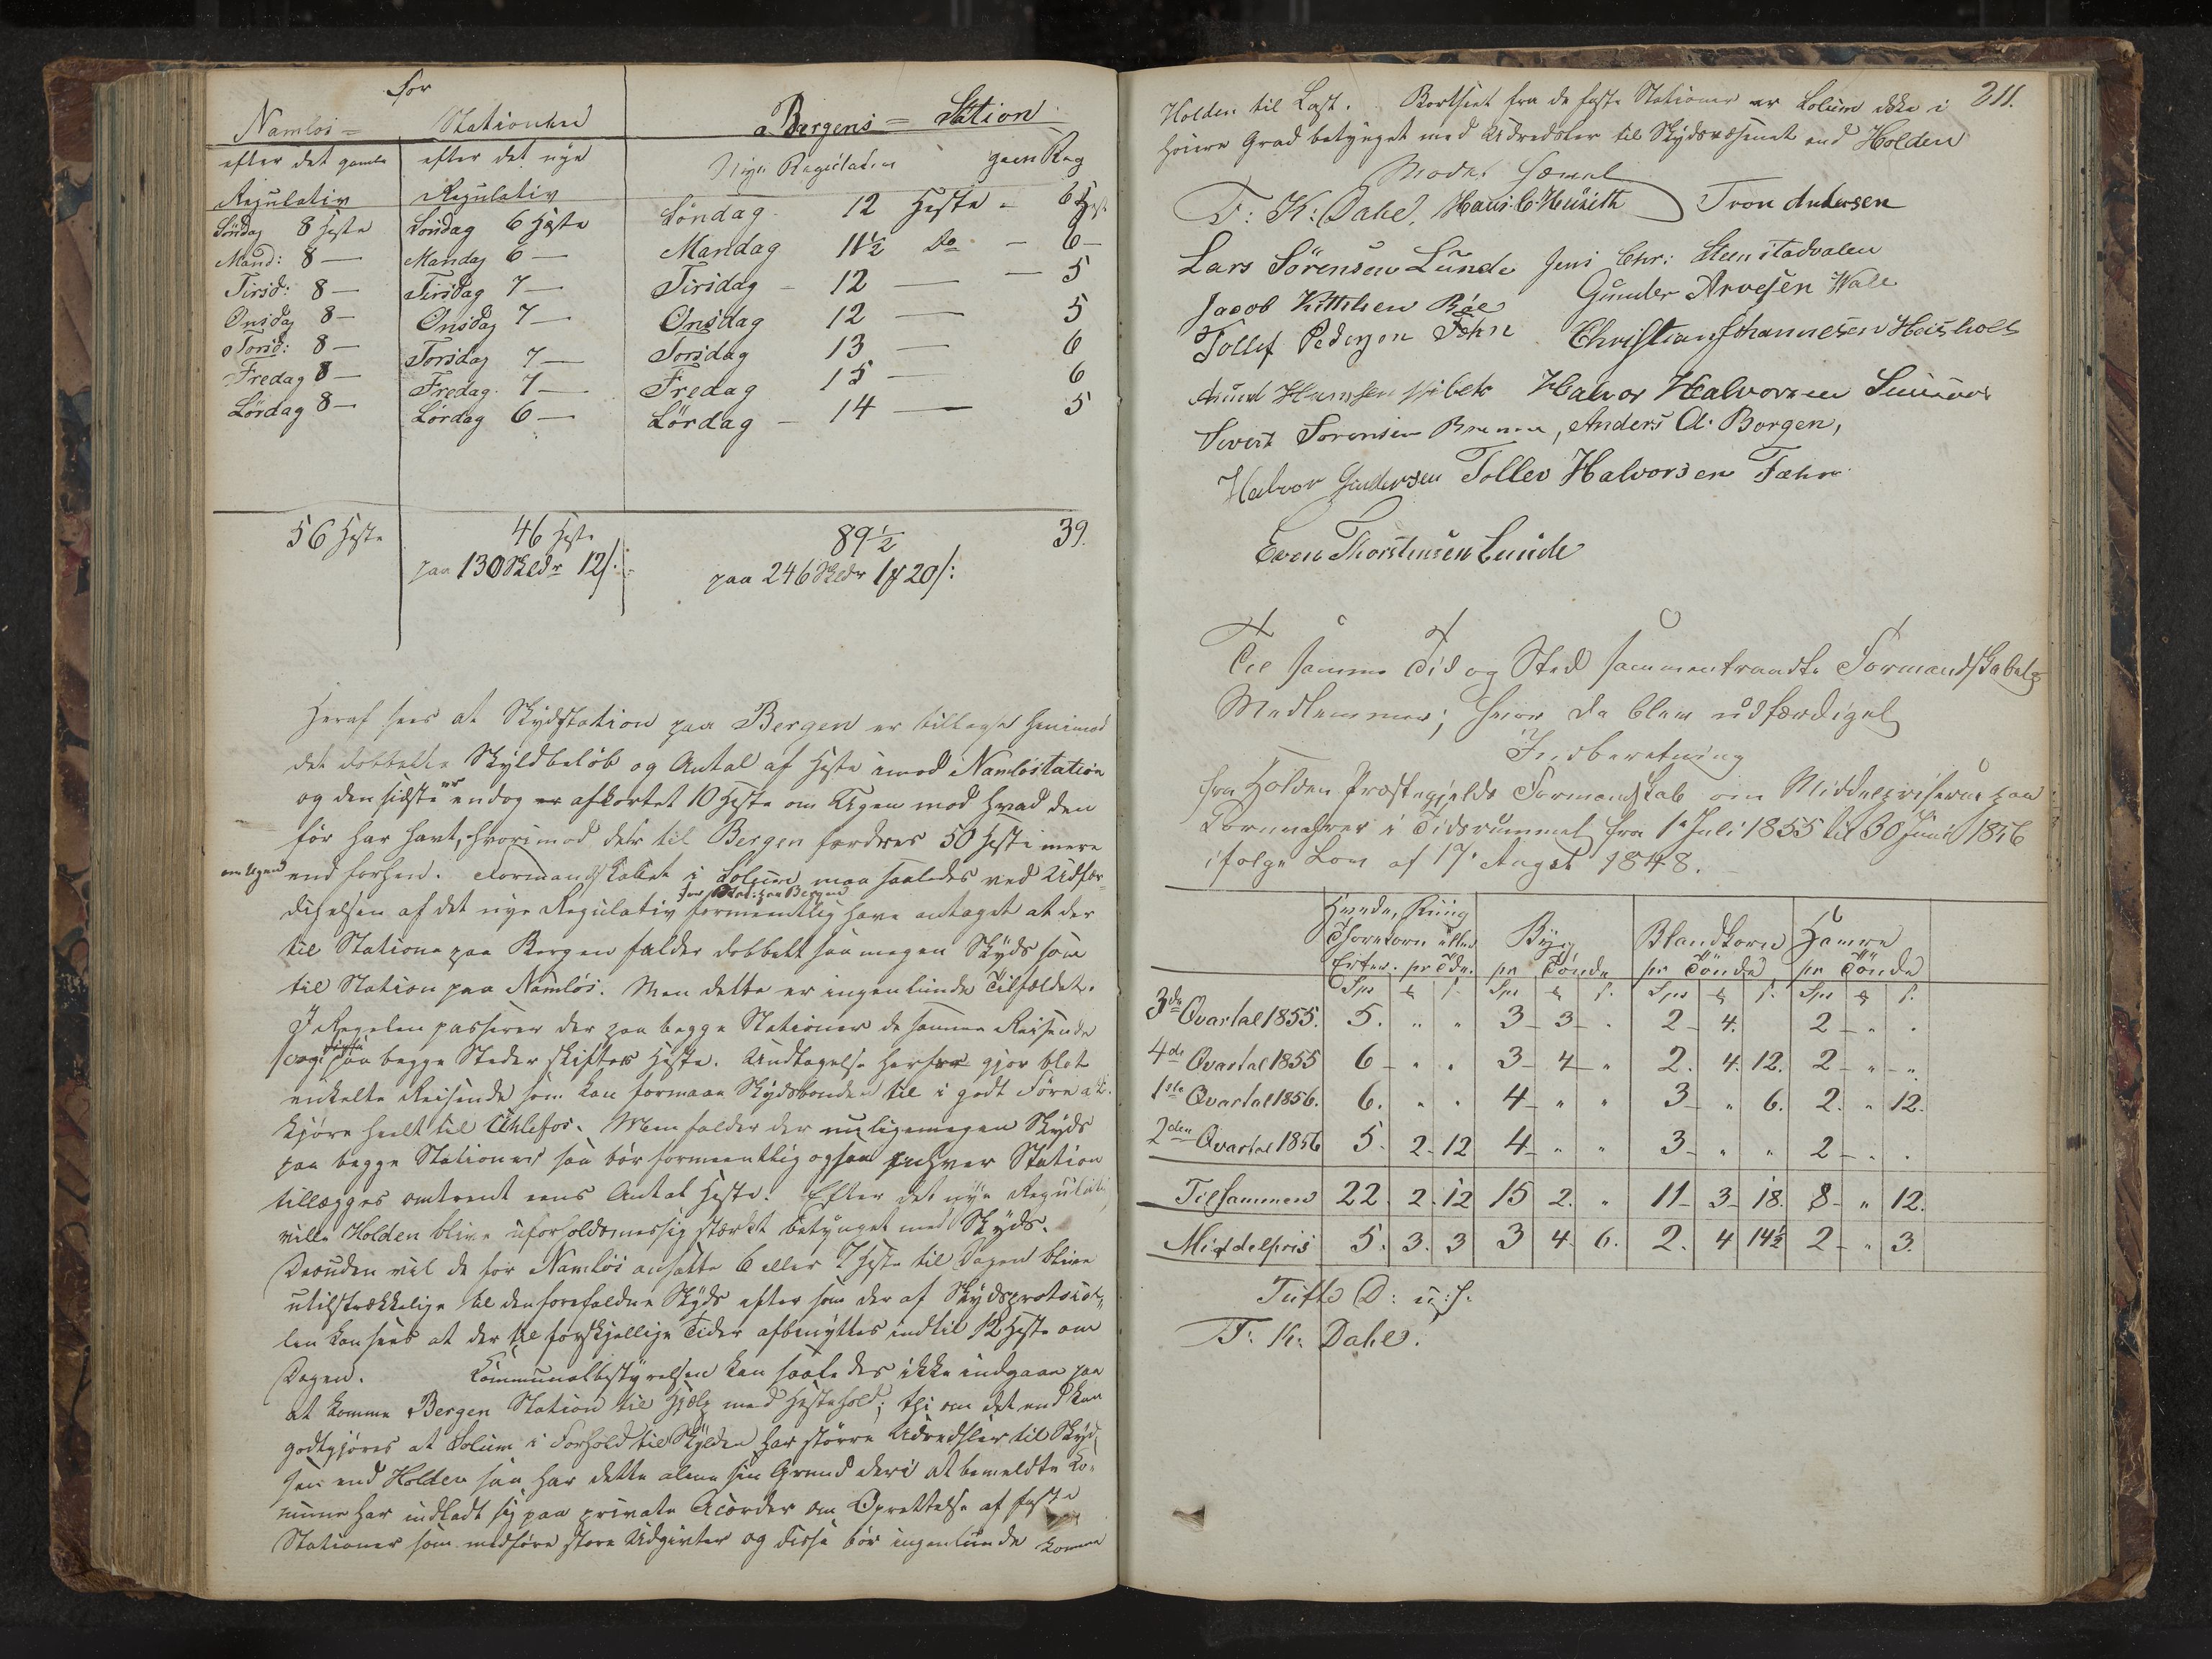 for
Namløs = Stationen Bergens = Station
efter det gamle efter det nye Nye Regulativ gam Reg
Regulativ Regulativ
Söndag 8 Heste Söndag 6 Heste Söndag. 12 Heste - 6 Hest
Mand: 8 — Mandag 6 — Mandag 11½ Do - 6 —
Tirsd: 8 — Tirsdag 7 — Tirsdag - 12 — — 5
Onsdag 8 — Onsdag 7 — Onsdag 12 — 5
Torsd: 8 — Torsdag 7 — Torsdag 13 — 6
Fredag 8 — Fredag. 7 — Fredag 15 — 6
Lördag 8 — Lördag 6 — Lördag - 14 — 5
56 Heste 46 Heste 89½ 39.
paa 130 Skldr 12 /: paa 246 Skldr 1 20 /:
Heraf sees at Skydsstation paa Bergen er tillagt henimod
det dobbelte Skyldbelöb og Antal af Heste imod Namlösstation
og den sidste er endog er afkortet 10 Heste om Ugen mod hvad den
för har havt, hvorimod dette til Bergen fordres 50 Heste mere
om Ugen end forhen. Formandskabet i Solum maa saaledes ved Udfær-
for Stat: paa Bergen
digelsen af det nye Regulativ formeentlig have antaget at der
til Station paa Bergen falder dobbelt saa megen Skyds som
til Station paa Namlös. Men dette er ingenlunde Tilfældet.
I Regelen passerer der paa begge Stationer de samme Reisende
og paa begge Steder skiftes Heste. Undtagelse herfra gjør blot
enkelte Reisende som kan formaae Skydsbonden til i godt Före at
kjöre heelt til Uhlefos. Men falder der nu ligemegen Skyds
paa begge Stationer saa bör formeentlig ogsaa enhver Station
tillægges omtrent eens Antal Heste. Efter det nye Regulativ
ville Holden blive uforholdsmæssig stærkt betynget med Skyds.
Desuden vil de for Namlös ansatte 6 eller 7 Heste til Dagen blive
utilstrækkelige til den forefaldne Skyds efter som der af Skydsprotocol-
len kan sees at der til forskjellige Tider afbenyttes indtil 12 Heste om
Dagen. Communalbestyrelsen kan saaledes ikke indgaae paa
at komme Bergen Station til Hjælp med Hestehold; thi om det end kan
godtgjøres at Solum i Forhold til Skylden har større Udredsler til Skyd-
sen end Holden saa har dette alene sin Grund deri at bemeldte Co-
mune har indladt sig paa private Acorder om Oprettelse af faste
Stationer som medføre store Udgivter og disse bör ingenlunde komme
211.
Holden til Last. Bortseet fra de faste Stationer er Solum ikke i
höiere Grad betynget med Udredsler til Skydsvæsenet end Holden
Mødet hævet
T: K: Dahl, Hans C. Tron Andersen
Lars Sörensen Lunde Jens Chr: Steenstadvalen
Jacob Kittilsen Böe Gunder Arvesen Wale
Tollef Pedersen Fæhn Christian Johannesen Heisholt
Halvor Halvorsen
Sivert Sorensen, Anders A. Borgen,
Halvor Gundersen Tollev Halvorsen Fæhn
Even Thorstensen Lunde
Til samme Tid og Sted sammentraadte Formandskabets
Medlemmer; hvor da blev udfærdiget
Indberetning
fra Holden Præstegjelds Formandskab om Middelpriserne paa
Kornvahrer i Tidsrummet fra 1. Juli 1855 til 30 Juni 1856
ifølge Lov af 17. August 1848.
Hvede, Rug
Thorekorn eller Byg Blandkorn Havre
Erter. pr Tde. pr Tönde pr Tönde pr Tönde
Spr s. Spr s. Spr s. Spr s.
3de Qvartal 1855. 5. " " 3 - 3 - " 2 - 4. 2 - " .
4de Qvartal 1855 6 - " " 3 - 4 - " 2. 4. 12. 2 - " - "
1ste Qvartal 1856. 6. " " 4 - " " 3 - " 6. 2. " 12.
2den Qvartal 1856 5. 2. 12 4 - " " 3 - " " 2 - . .
Tilsammen 22. 2. 12 15 2. " 11 - 3 - 18. 8 - " 12.
Middelpris 5. 3. 3 3 4. 6. 2. 4 14½ 2 - " 3.
Tufte D: u: s.
T: K: Dahl.